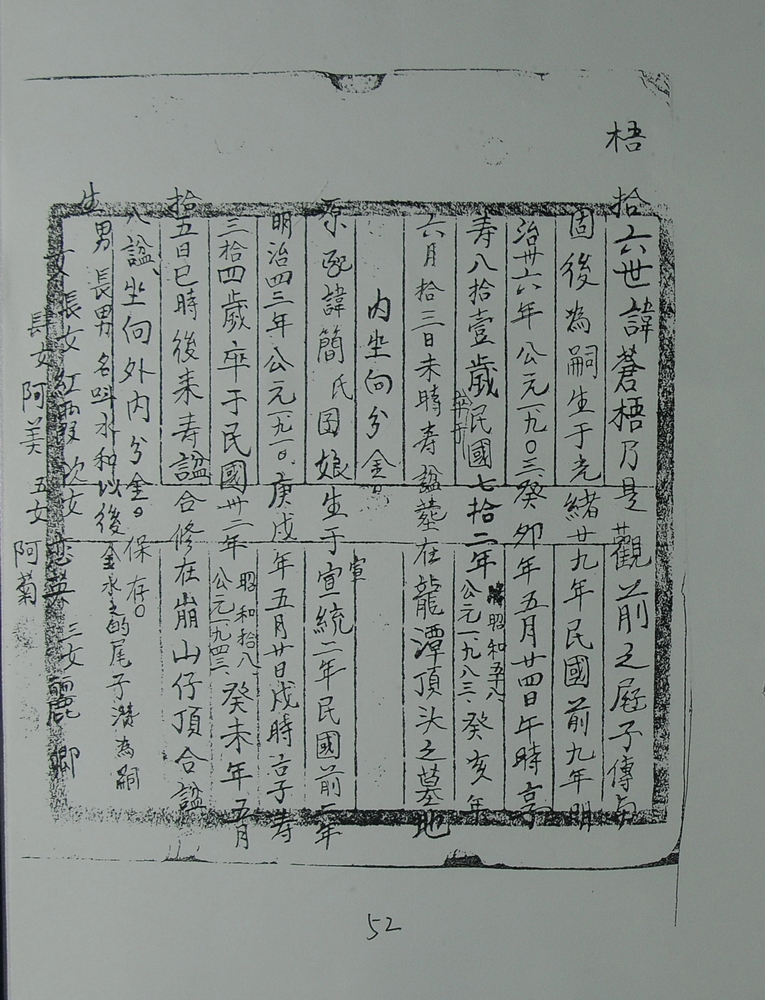 梧
拾六世諱蒼梧乃是觀前之庭子傳與
固後為嗣生于光緒廿九年民國前九年明
治卅六年公元一九〇三癸卯年五月廿四日午時享
壽八拾壹歲卒于民國七拾二年昭和五八公元一九八三癸亥年
六月拾三日未時壽謚葬在龍潭頂頭之墓地
內坐向分金
原配諱簡氏固娘生于宣統二年民國前二年
宣
明治四三年公元一九一〇庚戌年五月廿日戌時享壽
三拾四歲卒于民國卅二年昭和拾八公元一九四三癸未年五月
拾五日巳時後来壽謚合修在崩山仔頂合謚
八謚坐向外內分金。保存。
生男長男名叫水和以後金水之的尾子滿為嗣
女長女紅霞次女戀英三女麗卿
肆女阿美五女阿菊
52